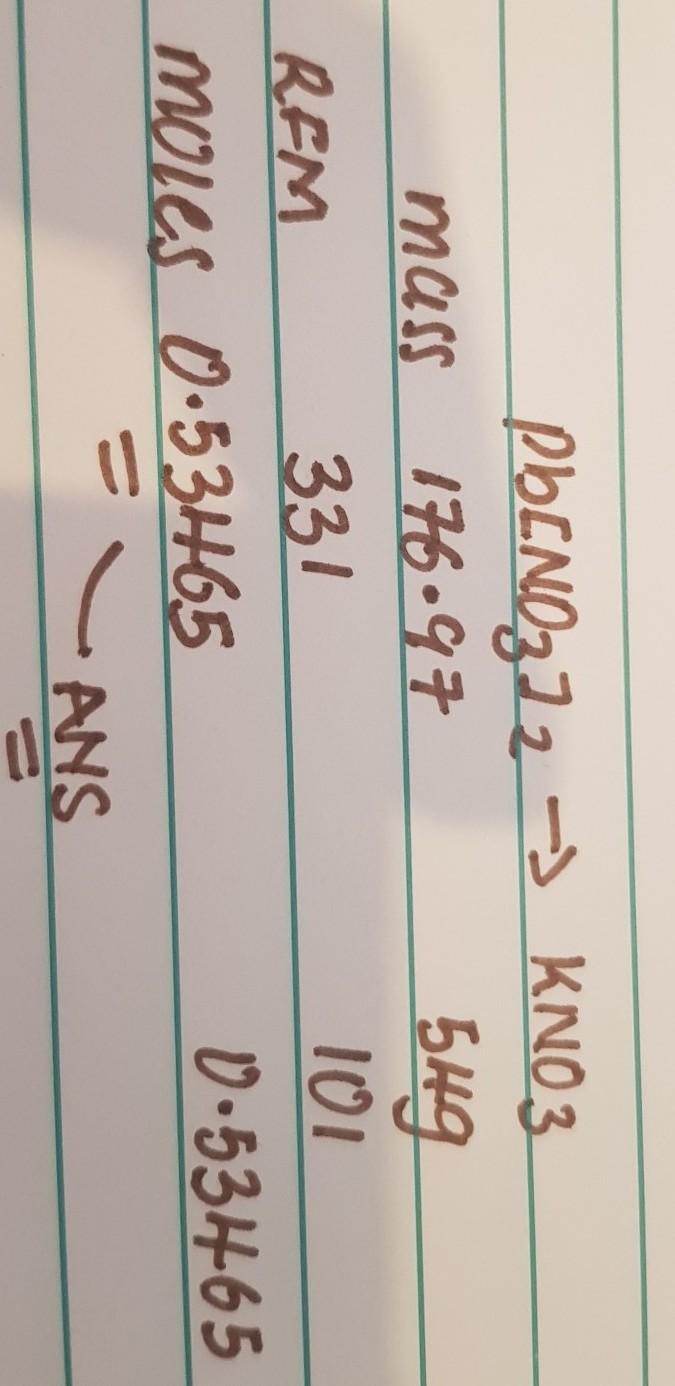 Pb[NO3]2 → KNO3
mass 176.97 54g
RFM 331 101
moles 0.53465 0.53465
ANS